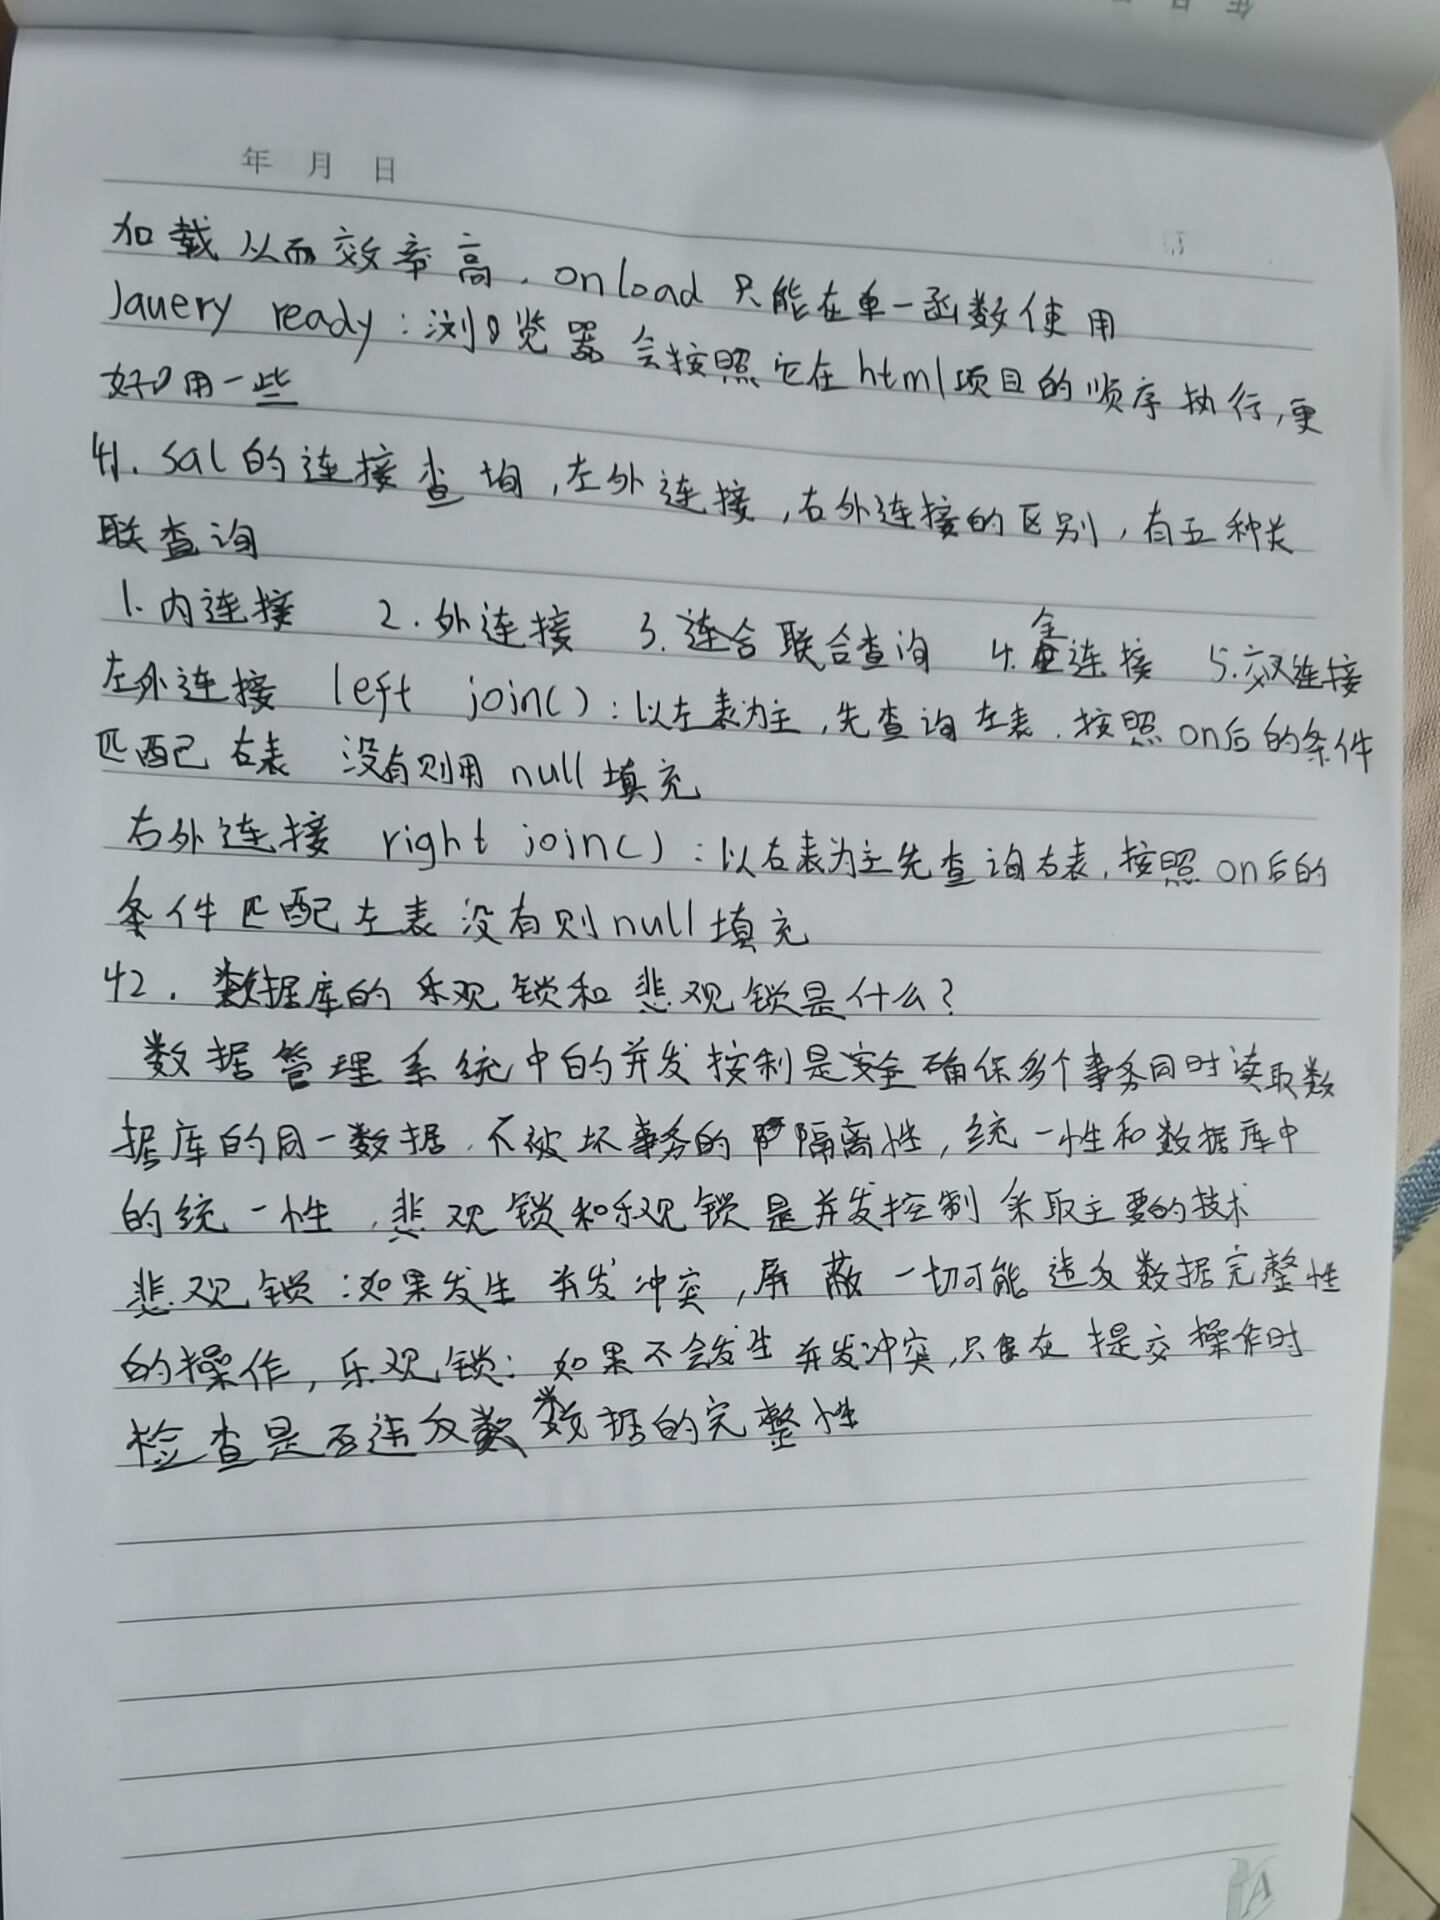 年 月 日
加载从而效率高.onload只能在单一函数使用
Jauery ready:浏览器会按照它在html项目的顺序执行,更
好用一些
41.sal的连接查询,左外连接,右外连接的区别,有五种关
联查询
1.内连接 2.外连接 3.连合联合查询 4.全连接 5.交叉连接
左外连接 left join():以左表为主,先查询左表.按照on后的条件
匹配右表 没有则用null填充
右外连接 right join():以右表为主先查询右表,按照on后的
条件匹配左表没有则null填充
42.数据库的乐观锁和悲观锁是什么?
数据管理系统中的并发按制是安全确保多个事务同时读取数
据库的同一数据.不被坏事务的隔离性,统一性和数据库中
的统一性,悲观锁和乐观锁是并发控制采取主要的技术
悲观锁:如果发生并发冲突,屏蔽一切可能违反数据完整性
的操作,乐观锁:如果不会发生并发冲突,只在提交操作时
检查是否违反数据的完整性